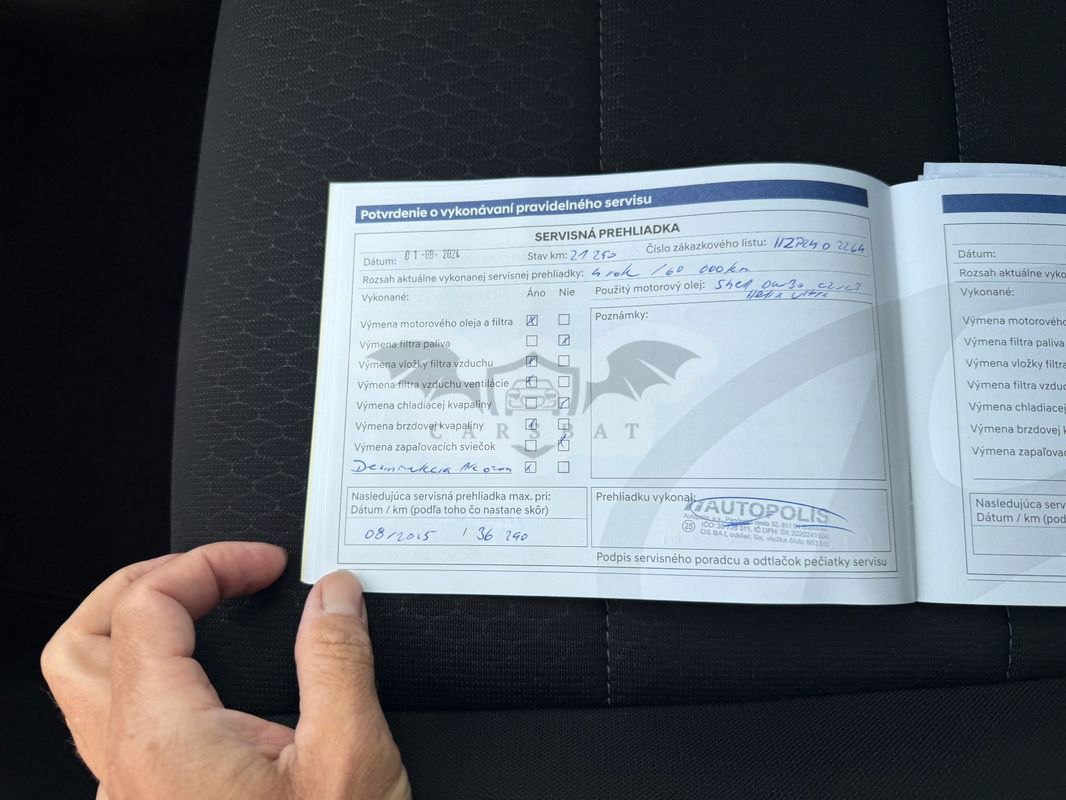 Potvrdenie o vykonávaní pravidelného servisu
SERVISNÁ PREHLIADKA
Dátum: 01-08-2024 Stav km: 21 290 Číslo zákazkového listu:
Rozsah aktuálne vykonanej servisnej prehliadky: 4 rok / 60 000 km
Vykonané: Áno Nie Použitý motorový olej: Shell 0W30 C2/C3
Helix Ultra
Výmena motorového oleja a filtra
Poznámky:
Výmena filtra paliva
Výmena vložky filtra vzduchu
Výmena filtra vzduchu ventilácie
Výmena chladiacej kvapaliny
Výmena brzdovej kvapaliny
Výmena zapaľovacích sviečok
CARSBAT
Nasledujúca servisná prehliadka max. pri:
Dátum / km (podľa toho čo nastane skôr)
08/2025 / 36 290
Prehliadku vykonal:
AUTOPOLIS
Podpis servisného poradcu a odtlačok pečiatky servisu
Dátum:
Rozsah aktuálne
Vykonané:
Výmena motorového
Výmena filtra paliva
Výmena vložky filtra
Výmena filtra
Výmena chladiacej
Výmena brzdovej
Výmena
Nasledujúca
Dátum / km